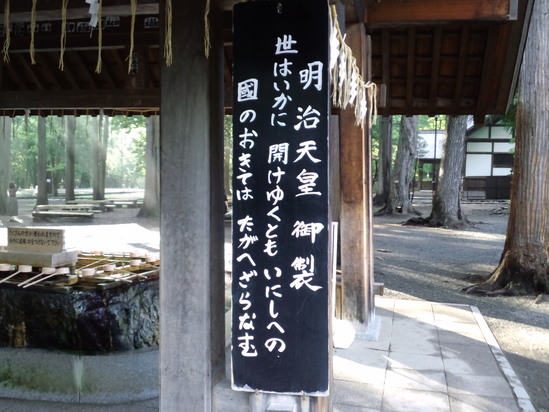 明治天皇御製
世はいかに 開けゆくとも いにしへの
國のおきては たがへざらなむ